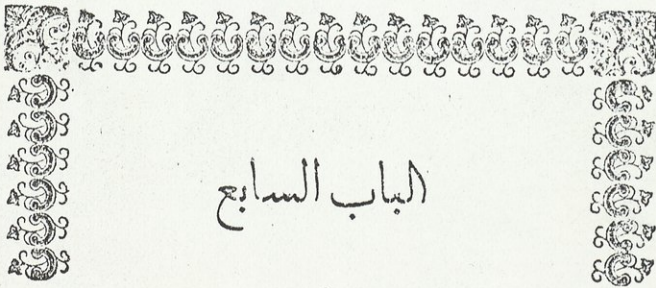 الباب السابع